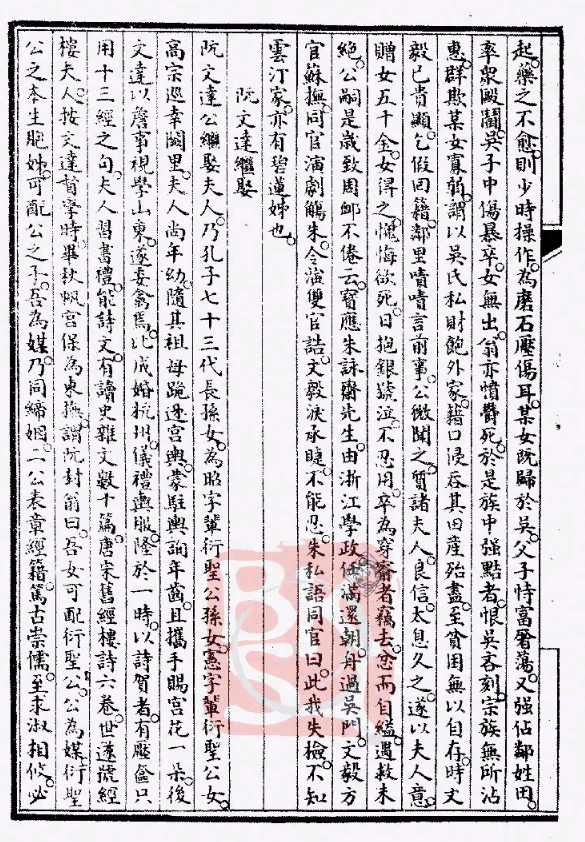 起。藥之不愈。則少時操作。為磨石壓傷耳。某女既歸於吳。父子恃富屠蕩。又强佔鄰姓田。
率眾毆鬬。吳子中傷暴卒。女無出。翁亦憤鬱死。於是族中强黠者。恨吳吝刻。宗族無所沾
惠。群欺某女寡弱。謂以吳氏私財飽外家。籍口浸吞其田產殆盡。至貧困無以自存。時文
毅已貴顯。乞假回籍。鄰里嘖嘖言前事。公微聞之。質諸夫人。良信。太息久之。遂以夫人意。
贈女五十金。女得之。愧悔欲死。日抱銀號泣。不忍用。卒為穿窬者竊去。忿而自縊。遇救未
絕。公嗣是歲致周卹不倦云。寶應朱詠齋先生。由浙江學政。任滿還朝。舟過吳門。文毅方
官蘇撫。同官演劇觴朱。令演雙官誥。文毅淚承睫。不能忍。朱私語同官曰。此我失檢。不知
雲汀家。亦有碧蓮姊也。
阮文達繼娶
阮文達公繼娶夫人。乃孔子七十三代長孫女。為昭字輩衍聖公孫女。憲字輩衍聖公女。
高宗巡幸闕里。夫人尚年幼。隨其祖母跪迎宮輿。蒙駐輿詢年齒。且攜手賜宮花一朵。後
文達以詹事視學山東。遂委禽焉。比成婚杭州。儀禮輿服。隆於一時。以詩賀者。有壓奩只
用十三經之句。夫人習書禮。能詩文。有讀史雜文數十篇。唐宋舊經樓詩六卷。世遂號經
樓夫人。按文達督學時。畢秋帆宮保為東撫。謂阮封翁曰。吾女可配衍聖公。公為媒。衍聖
公之本生胞姊。可配公之子。吾為媒。乃同締姻。二公表章經籍。篤古崇儒。至求淑相攸。必